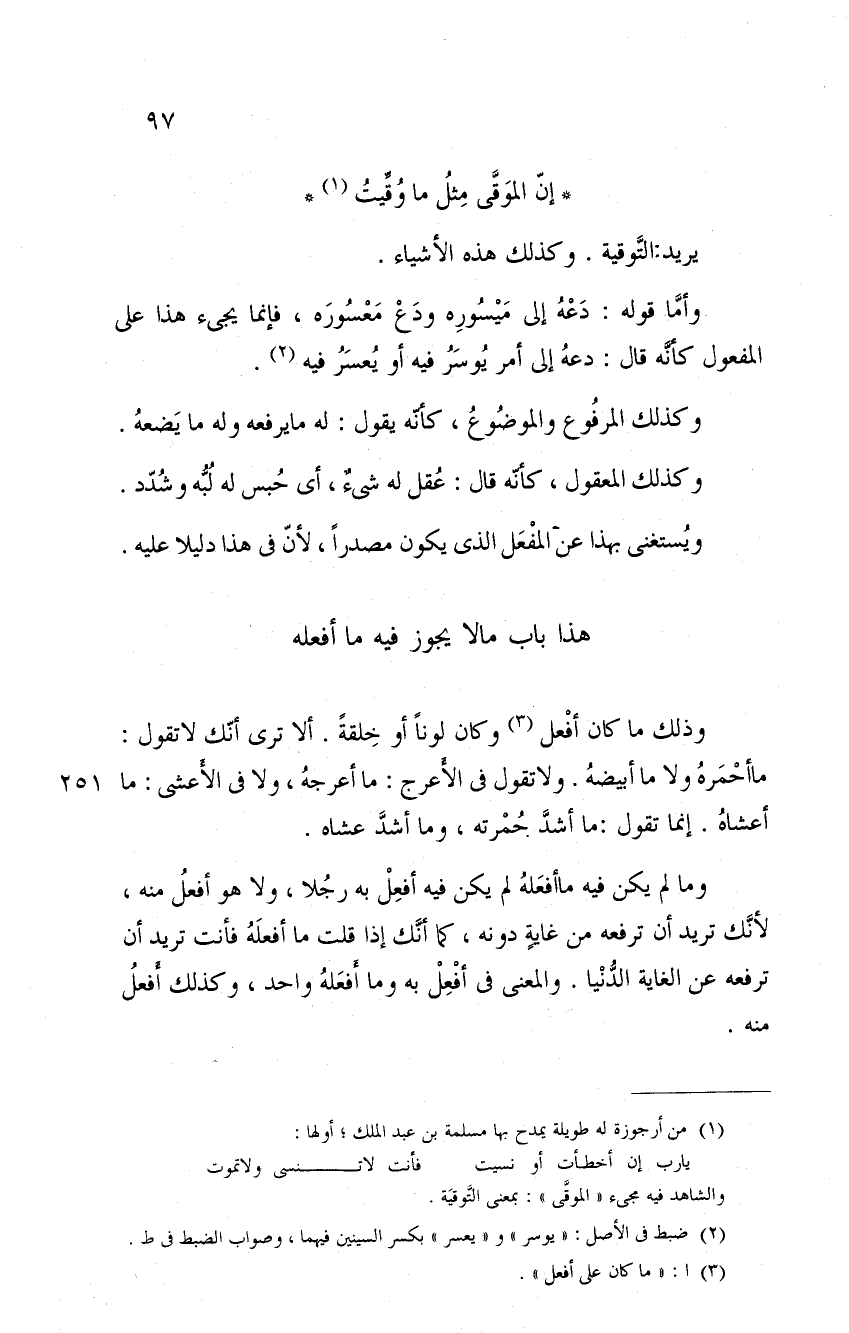 ٩٧
* إنّ الموَقَّى مِثلُ ما وُقِّيتُ (١) *
يريد:التَّوقية . وكذلك هذه الأشياء .
وأمَّا قوله : دَعْهُ إلى مَيْسُورِه ودَعْ مَعْسُورَه ، فإنما يجىء هذا على
المفعول كأنَّه قال : دعهُ إلى أمر يُوسَرُ فيه أو يُعسَرُ فيه (٢) .
وكذلك المرفُوع والموضُوعُ ، كأنّه يقول : له مايرفعه وله ما يَضعهُ .
وكذلك المعقول ، كأنّه قال : عُقل له شىءٌ ، أى حُبس له لُبُّه وشُدّد .
ويُستغنى بهذا عن المفْعَل الذى يكون مصدراً ، لأنّ فى هذا دليلا عليه .
هذا باب مالا يجوز فيه ما أفعله
وذلك ما كان أفْعل (٣) وكان لوناً أو خِلقةً . ألا ترى أنّك لاتقول :
ماأحْمَرهُ ولا ما أبيضهُ . ولاتقول فى الأَعرج : ما أعرجهُ ، ولا فى الأَعشى : ما ٢٥١
أعشاهُ . إنما تقول :ما أشدَّ حُمْرته ، وما أشدَّ عشاه .
وما لم يكن فيه ماأفعَلهُ لم يكن فيه أفعِلْ به رجُلا ، ولا هو أفعلُ منه ،
لأنَّك تريد أن ترفعه من غايةٍ دونه ، كما أنَّك إذا قلت ما أفعلَهُ فأنت تريد أن
ترفعه عن الغاية الدُّنْيا . والمعنى فى أفْعِلْ به وما أَفعَلهُ واحد ، وكذلك أَفعلُ
منه .
(١) من أرجوزة له طويلة يمدح بها مسلمة بن عبد الملك ؛ أولها :
يارب إن أخطأت أو نسيت فأنت لاتـــــــنسى ولاتموت
والشاهد فيه مجىء « الموقَّى » : بمعنى التَّوقيَة .
(٢) ضبط فى الأصل : « يوسر » و « يعسر » بكسر السينين فيهما ، وصواب الضبط فى ط .
(٣) ا : « ما كان على أفعل » .